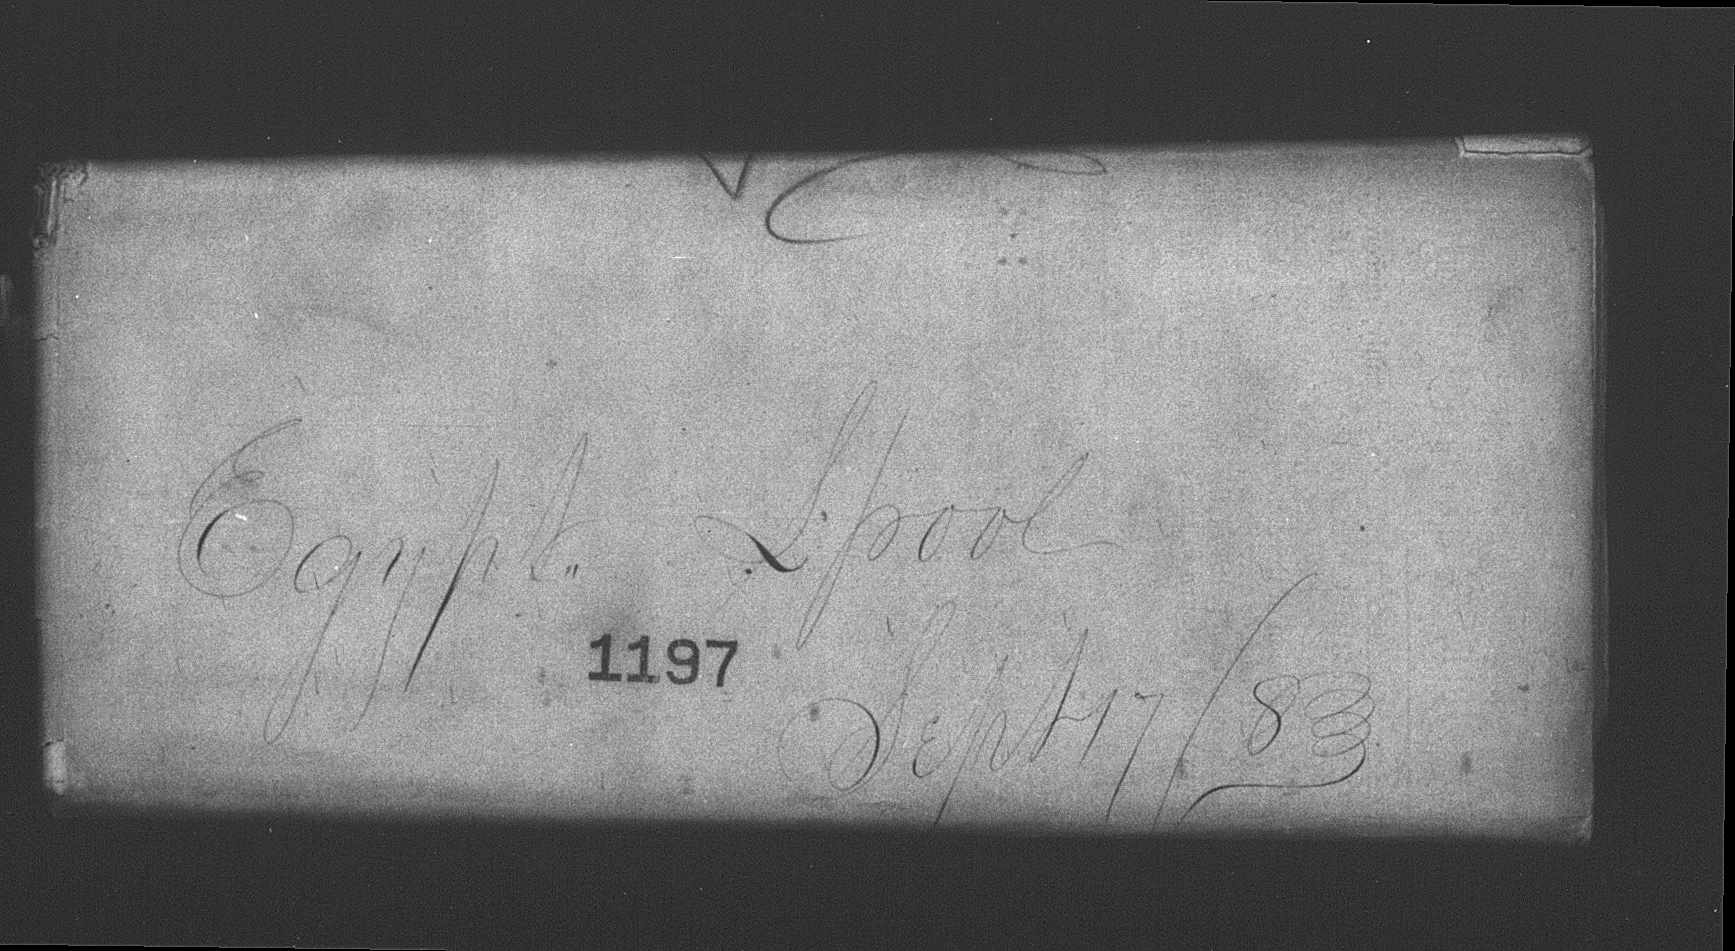 Egypt. Spool
1197
Sept 17/83